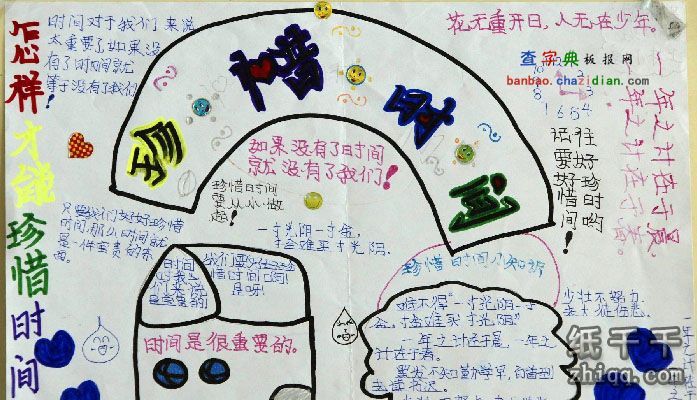 怎样才能珍惜时间
时间对于我们来说
太重要了如果没
有了时间就
等于没有了我们!
珍惜时间
花无重开日,人无在少年。
查字典 板报网
banbao.chazidian.com
一年之计在于
一年之计在于春。
如果没有了时间
就没有了我们!
珍惜时间
要从小做
起!
一寸光阴一寸金,
寸金难买寸光阴.
要好好珍惜时间哟!
只要我们好好珍惜
时间那么时间就
是一件宝贵的
时间
们来说
是宝贵的
我们要好好珍
惜时间
是呀!
时间是很重要的。
珍惜时间小知识
一寸光阴一寸
金,寸金难买寸光阴"
一年之计在于晨,一年之
计在于春。
黑发不知勤学早,白首
少壮不努力,
老大徒伤悲
纸千千
zhiqq.com